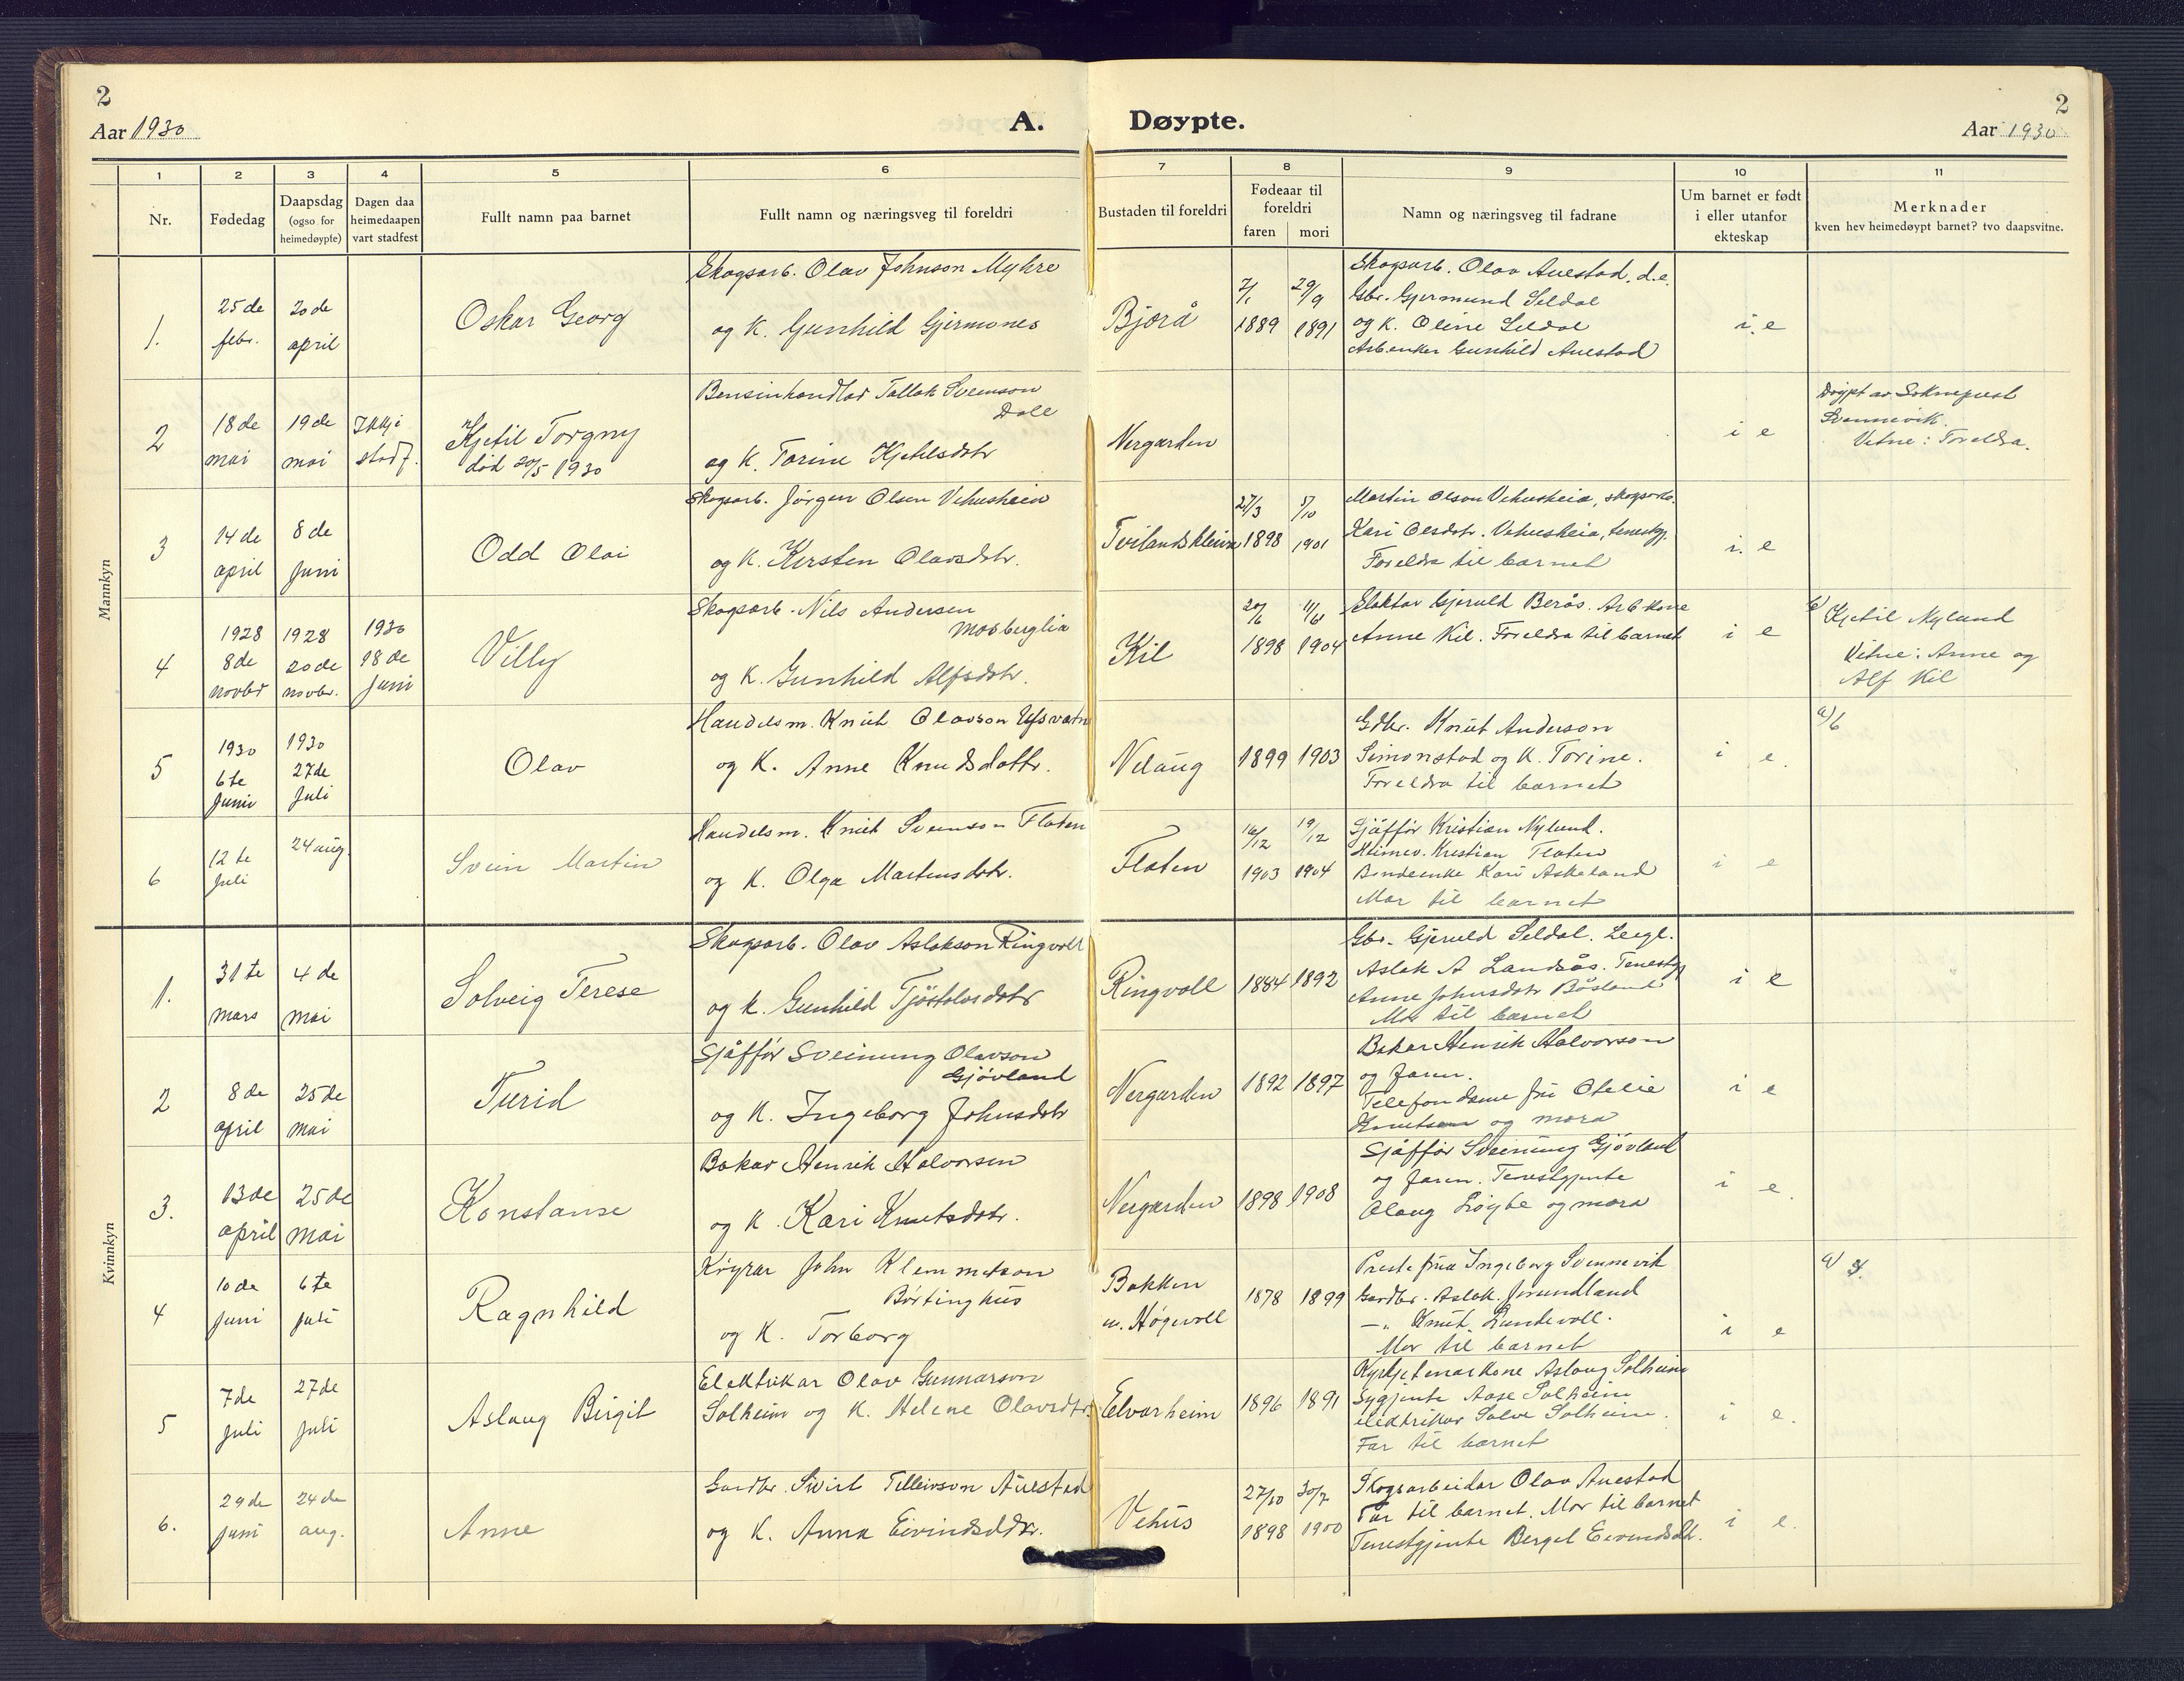 2
Aar 1930
A. Døypte.
2
Aar 1930
1 2 3 4 5 6 7 8 9 10 11
Nr.
Fødedag
Daapsdag (ogso for heimedøypte)
Dagen daa heimedaapen vart stadfest
Fullt namn paa barnet
Fullt namn og næringsveg til foreldri
Bustaden til foreldri
Fødeaar til foreldri
faren mori
Namn og næringsveg til fadrane
Um barnet er født i eller utanfor ekteskap
Merknader
kven hev heimedøypt barnet? tvo daapsvitne.
Mannkyn
1.
25 de febr.
20 de april
Oskar Georg
Skogsarb. Olav Johnson Myhre
og K. Gunhild Gjermones
Bjorå
7/1 1889
29/9 1891
Skogsarb. Olav Auestad. d.e.
Gbr. Gjermund Seldal
og K. Oline Seldal
Gunhild Auestad
i. e
2
18 de mai
19 de mai
Ikkje stadf.
Kjetil Torgny
død 20/5 1930
Bensinhandlar Tallak Sveinson
Dale
og K. Torine Kjetilsdotr
Nergarden
i e
Døypt av Sokneprest
Svennevik.
Vitne: Foreldra.
3
14 de april
8 de Juni
Odd Olai
Skogsarb. Jörgen Olsen Vehusheia
og K. Kirsten Olavsdtr.
Tveilandskleiva
27/3 1898
5/10 1901
Martin Olson Vehusheia, skogsarb.
Kari Olsdotr. Vehusheia, tenestgj.
Foreldra til barnet
i. e
4
1928 8 de novbr
1928 20 de novbr.
1930 18 de Juni
Villy
Skogsarb. Nils Andersen
Mosberglia
og K. Gunhild Alfsdotr.
Kil
20/6 1898
11/6 1904
Gjeruld Berås. Arb.kone
Anne Kil. Foreldra til barnet
i e
Kjetil Nylund
Vitne: Anne og
Alf Kil
5
1930 6te Juni
1930 27de Juli
Olav
Handelsm. Knut Olavson Ufsvatn
og K. Anne Knudsdottr.
Nelaug
1899 1903
Gdbr. Knut Anderson
Simonstad og K. Torine.
Foreldra til barnet
i e.
a/6
6
12 te Juli
24 aug.
Svein Martin
Handelsm. Knut Sveinson Flaten
og K. Olga Martinsdotr.
Flaten
16/12 1903
19/12 1904
Sjåffør Kristian Nylund.
Heimev. Kristian Flaten
Bondeenke Kari Askeland
Mor til barnet
i e
Kvinnkyn
1.
31 te mars
4 de mai
Solveig Terese
Skogsarb. Olav Aslakson Ringvoll
og K. Gunhild Tjöstolvsdotr
Ringvoll
1884 1892
Gbr. Gjeruld Seldal.
Aslak A Landsås. Tenestgj.
Anne Johnsdotr Båsland
Mor til barnet
i e
2
8 de april
25 de mai
Turid
Sjåffør Sveinung Olavson
Gjövland
og K. Ingeborg Johnsdotr
Nergarden
1892 1897
Bakar Henrik Halvorson
og faren.
Telefondame frk Otelie
Knutsen og mora
i e
3.
13 de april
25 de mai
Konstanse
Bakar Henrik Halvorsen
og K. Kari Knutsdotr.
Nergarden
1898 1908
Sjåffør Sveinung Gjövland
og faren. Tenestgjente
Olaug og mora
i e.
4
10 de Juni
6 te Juli
Ragnhild
Köyrar John Klemmetson
Börtinghus
og K. Torborg
Bakken
m. Høgevoll
1878 1899
Prestefrua Ingeborg Svennevik
Gardbr. Aslak Jorundland
—„ Knut Lundevoll.
Mor til barnet
i e
5
7 de Juli
27 de Juli
Aslaug Birgit
Elektrikar Olav Gunnarson
Solheim og K. Helene Olavsdtr.
Elvarheim
1896 1891
Kyrkjetenarkone Aslaug Solheim
Sygjente Aase Solheim
elektrikar Salve Solheim.
Far til barnet
i e.
6.
29 de Juni
24 de aug.
Anne
Gardbr. Sivert Tellevson Auestad
og K. Anna Eivindsdtr.
Vehus
27/10 1898
30/7 1900
Skogsarbeidar Olav Auestad
Far til barnet. Mor til barnet
Tenestgjente Bergit Eivindsdt.
i e.